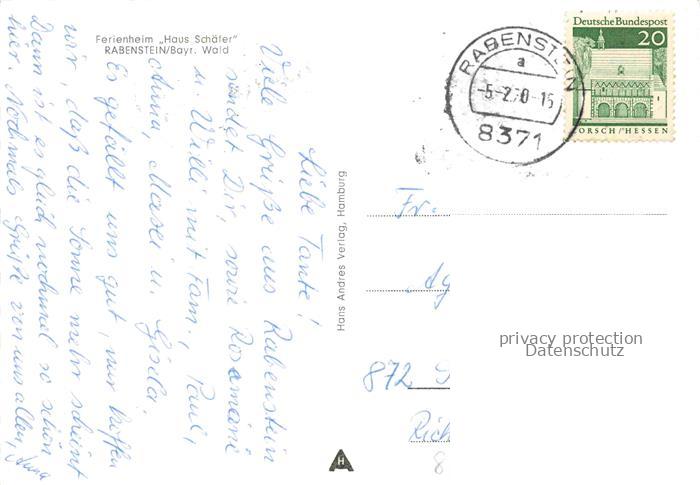 Ferienheim „Haus Schäfer"
RABENSTEIN/Bayr. Wald
Liebe Tante!
Viele Grüße aus Rabenstein
sendet Dir, sowie Rosmarie
u. Willi mit Fam., Paul,
Anna, u. Gisela.
Es gefällt uns gut, nur hoffen
wir, daß die Sonne mehr scheint
Dann ist es gleich nochmal so schön
hier. Nochmals Grüße von uns allen, Anna
Hans Andres Verlag, Hamburg
H
RABENSTEIN
a
-5-2.70-15
8371
Deutsche Bundespost
20
LORSCH/HESSEN
Fr.
Ag
872 S
Rich
8
privacy protection
Datenschutz